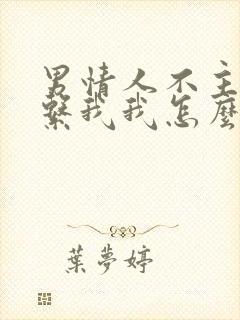 男情人不主
繫我我怎麼
葉夢婷